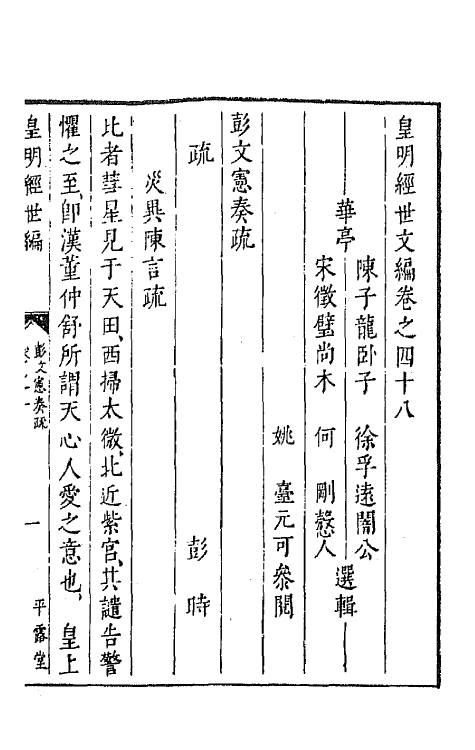 皇明經世文編卷之四十八
華亭
陳子龍卧子 徐孚遠闇公
宋徵璧尚木 何 剛愨人
選輯
姚 臺元可參閱
彭文憲奏疏
疏 彭 時
災異陳言疏
比者彗星見于天田、西掃太微、北近紫宮、其譴告警
懼之至、卽漢董仲舒所謂天心人愛之意也、 皇上
皇明經世編
彭文憲奏疏
一
平露堂